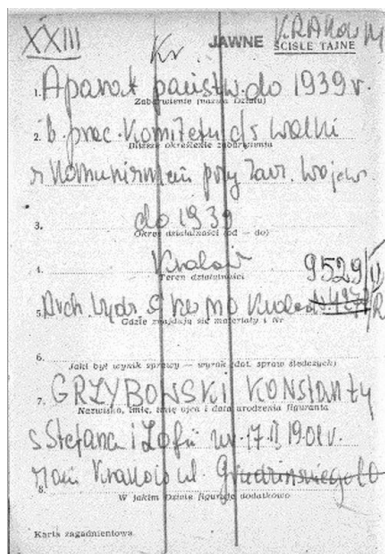 XXIII Kr. JAWNE KRAKÓW
ŚCIŚLE TAJNE
1. Aparat państw. do 1939 r.
Zabarwienie (nazwa Działu)
2. b. prac. Komitetu d/s Walki
Bliższe określenie zabarwienia
z Komunizmem przy Zarz. Wojew.
3. do 1939
Okres działalności (od — do)
4. Kraków
Teren działalności
9529/
5. Arch. Wydz. "C" KW MO Kraków
Gdzie znajdują się materiały i Nr
6.
Jaki był wynik sprawy — wyrok (dot. spraw śledczych)
7. GRZYBOWSKI KONSTANTY
Nazwisko, imię, imię ojca i data urodzenia figuranta
s. Stefana i Zofii ur. 17.II.1901 r.
zam. Kraków ul. Grudzińskiego
8.
W jakim Dziale figuruje dodatkowo
Karta zagadnieniowa